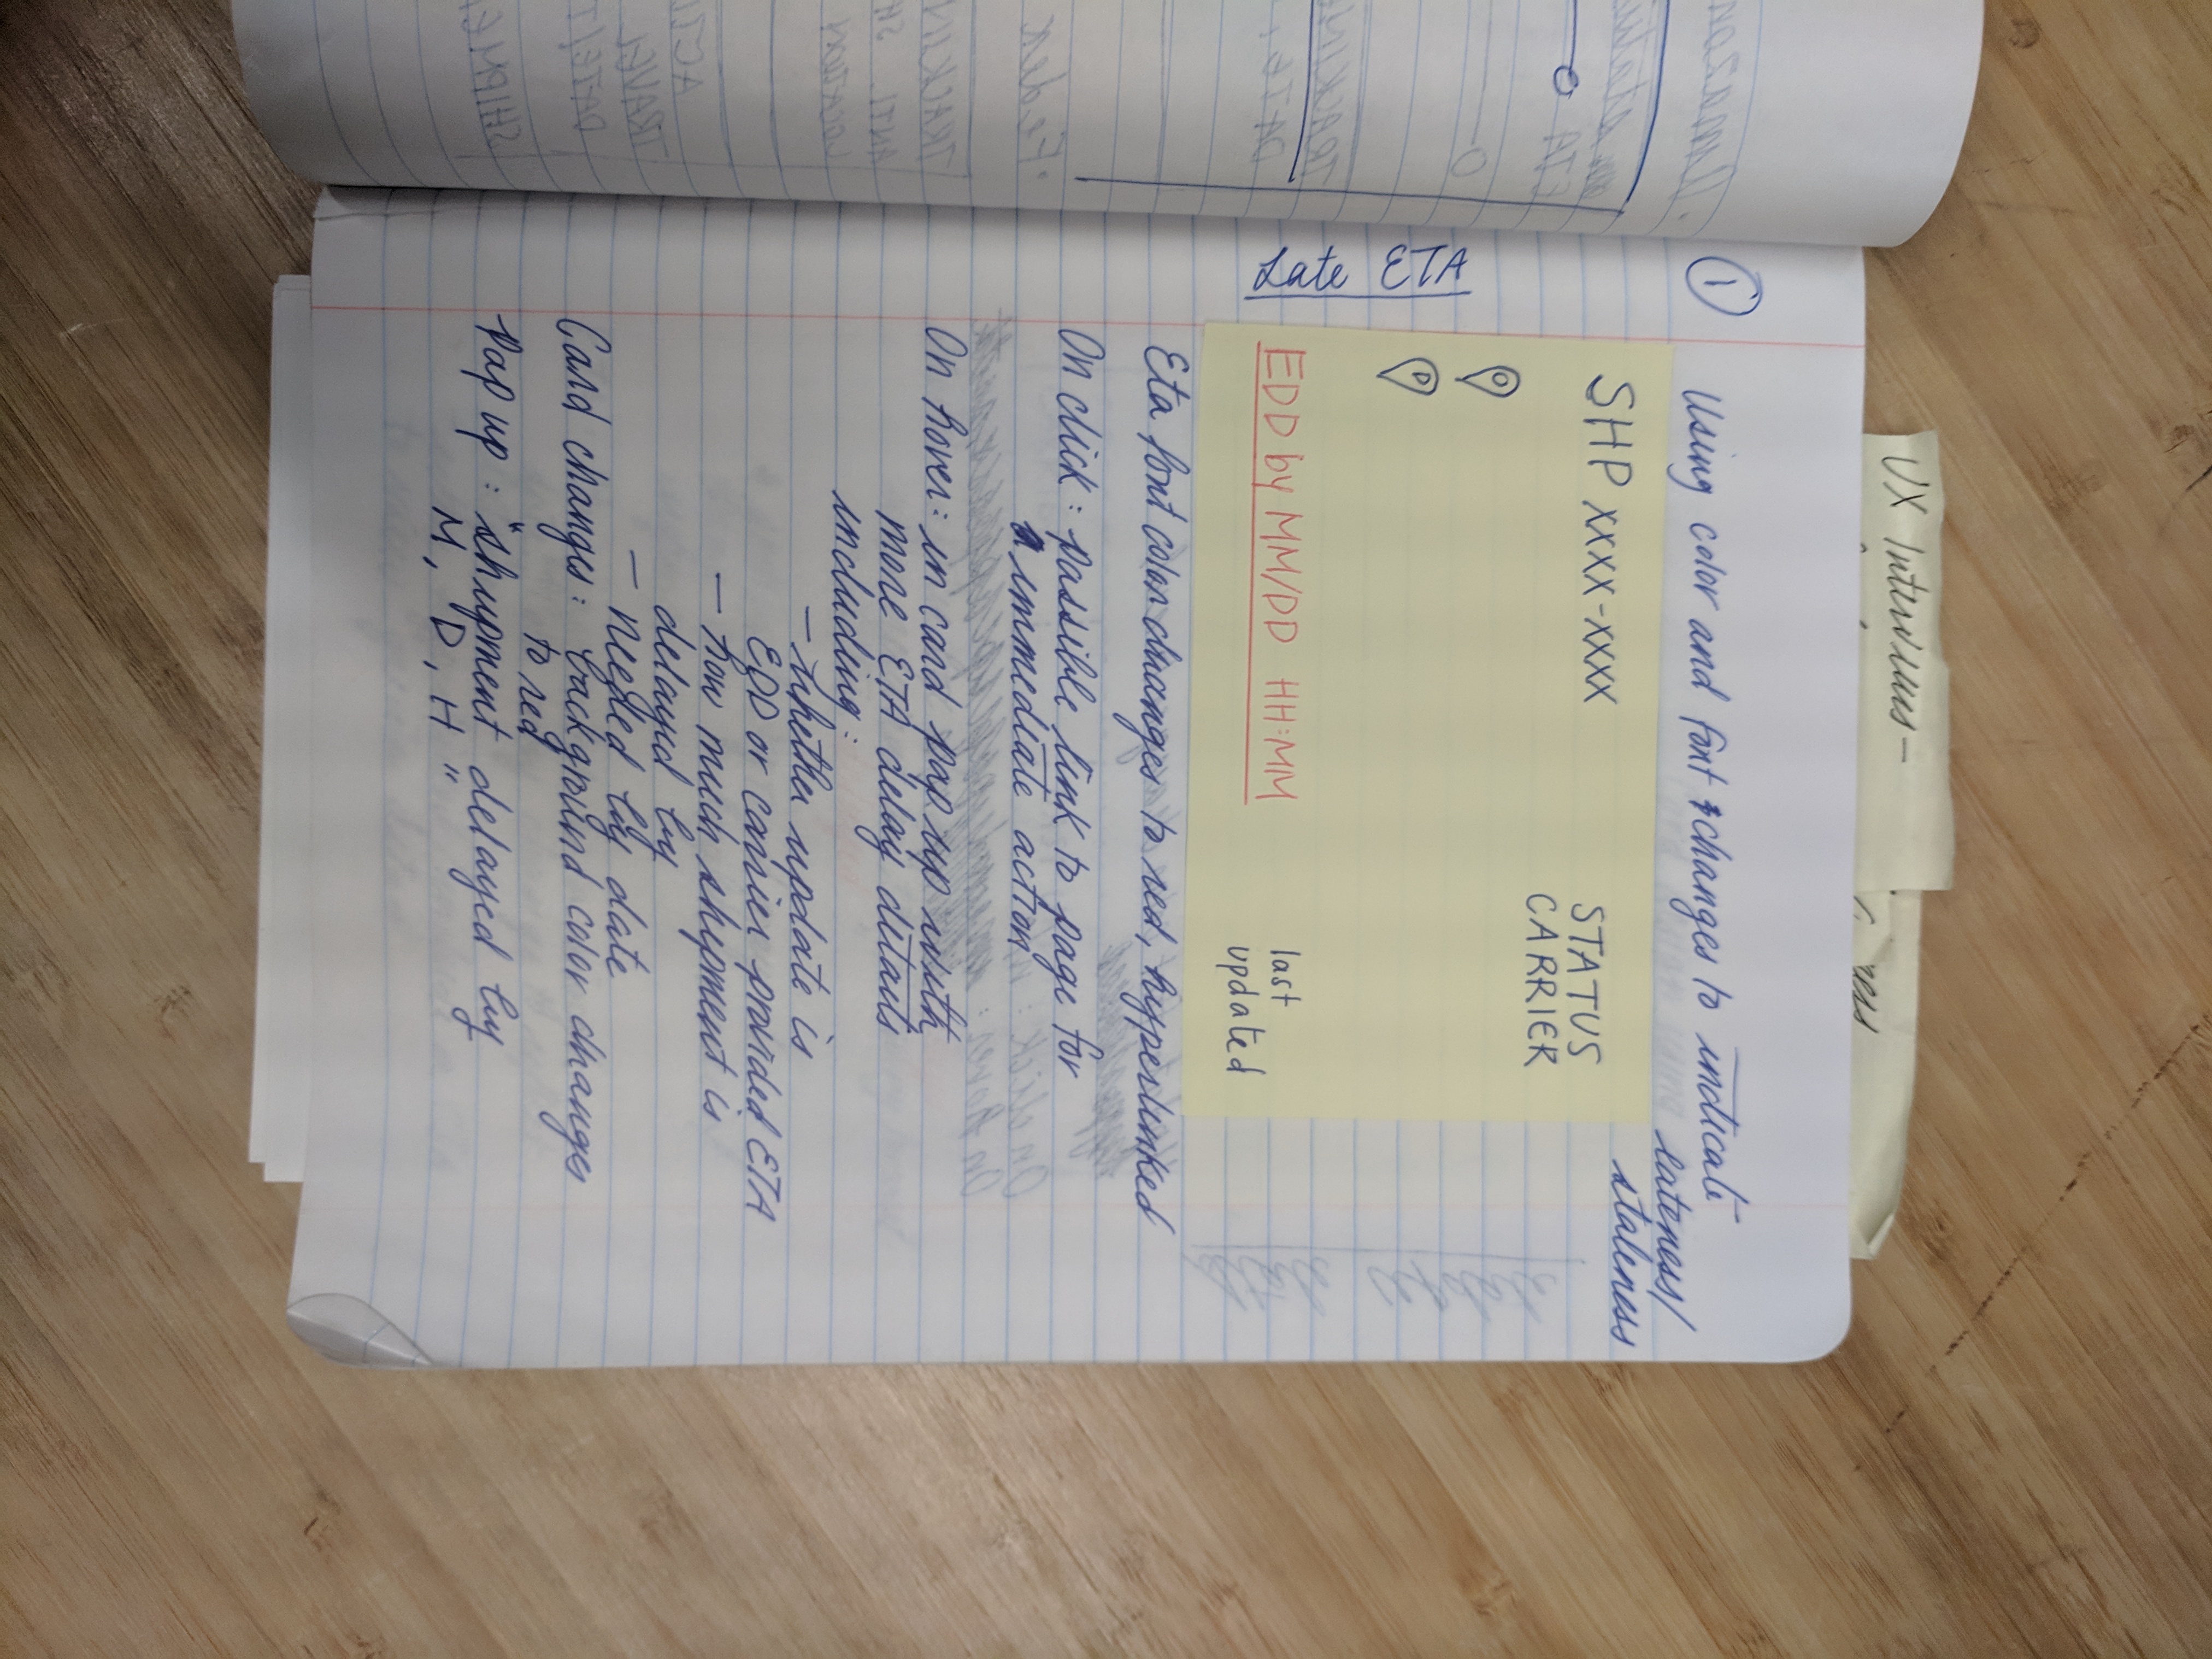 UX Interviews -
① Using color and font changes to indicate
lateness/
staleness
SHP XXXX-XXXX
STATUS
CARRIER
Late ETA
EDD by MM/DD HH:MM
last
updated
Eta font color changes to red, hyperlinked
On click: possible link to page for
immediate action
On hover: in card pop up with
more ETA delay details
including:
- whether update is
EDD or carrier provided ETA
- how much shipment is
delayed by
- Needed by date
Card changes: background color changes
to red
Pop up: "shipment delayed by
M, D, H "